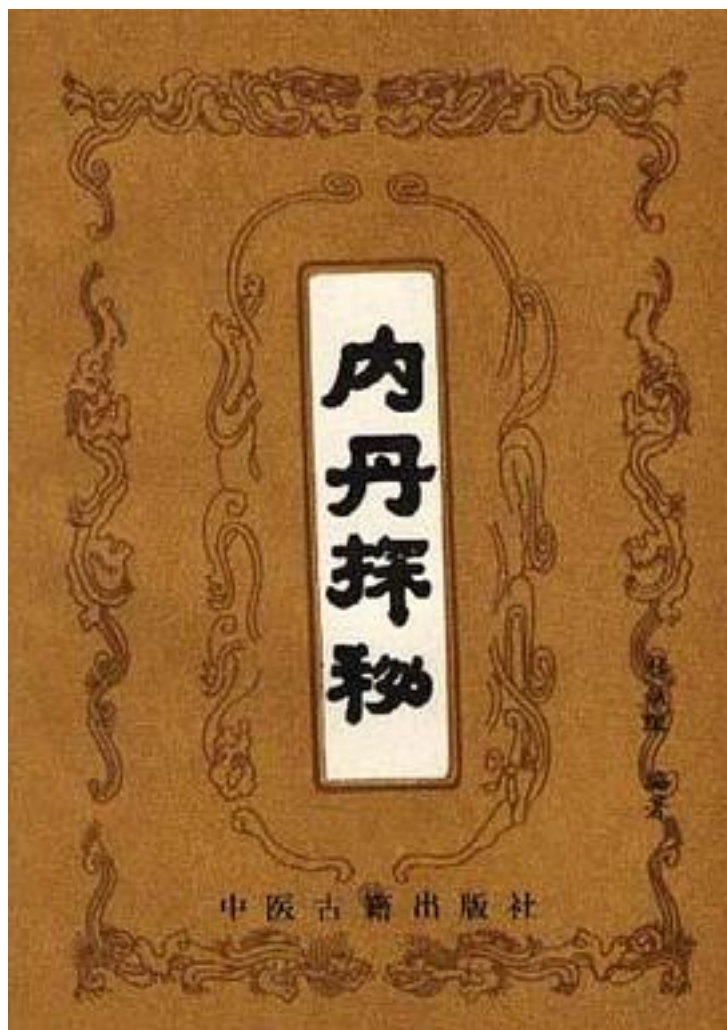 内丹探秘
编著
中医古籍出版社